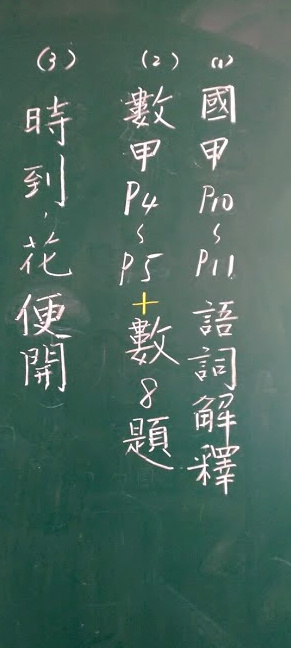 (1) 國甲P10~P11語詞解釋
(2) 數甲P4~P5+數8題
(3) 時到，花便開